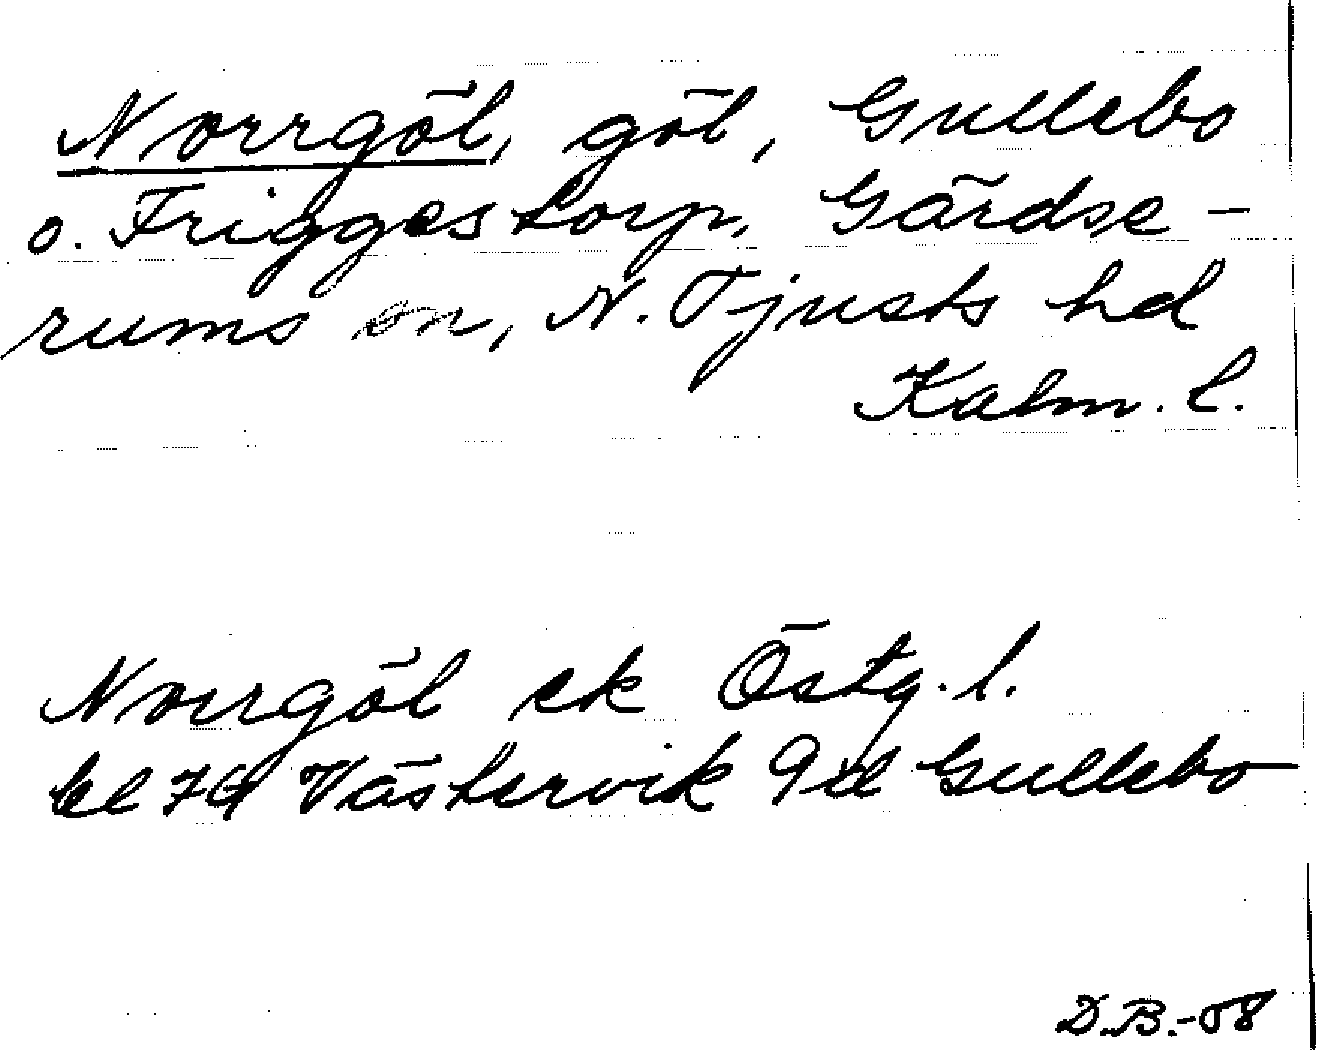 Norrgöl, göl, Gullebo
o. Friggestorp, Gärdse-
rums sn, N. Tjusts hd
Kalm. l.
Norrgöl ek Östg. l.
bl 74 Västervik 9 il Gullebo
D.B.-08